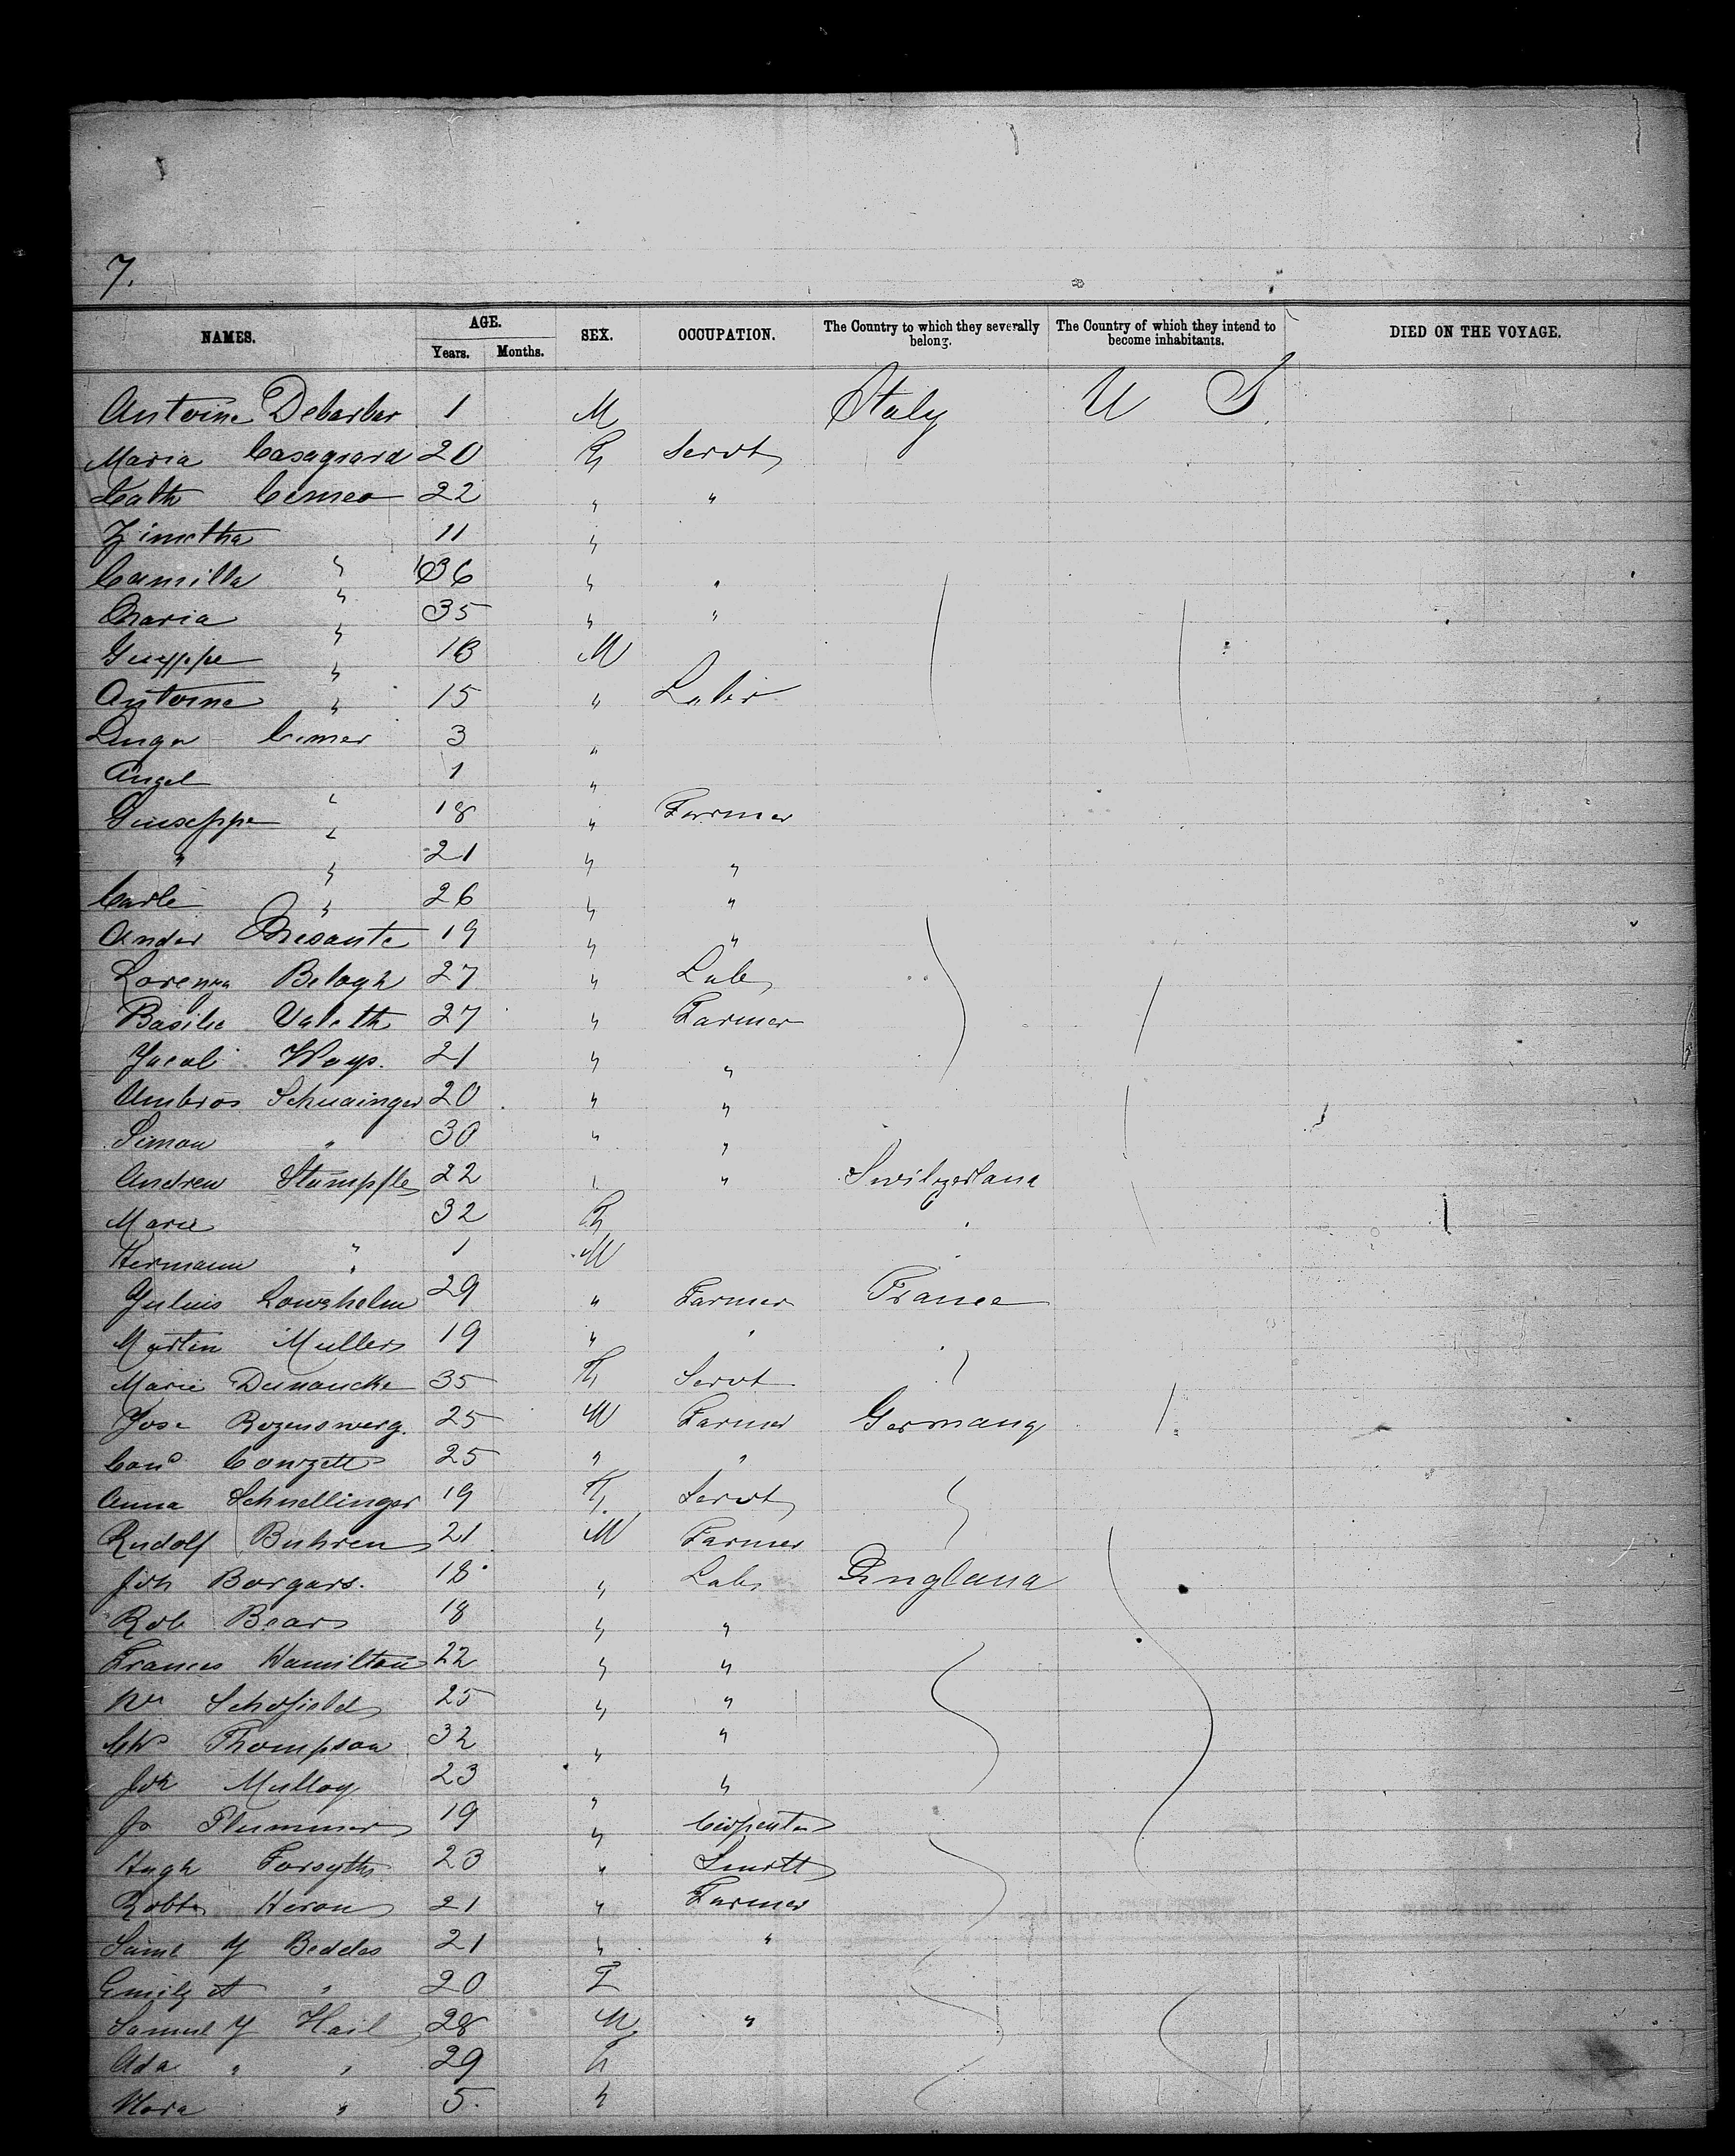 7.
NAMES. AGE. SEX. OCCUPATION. The Country to which they severally belong. The Country of which they intend to become inhabitants. DIED ON THE VOYAGE.
Years. Months.
Antoine Debarber 1 M Italy U S
Maria Casagrard 20 F Servt
Cath Cemeo 22 " "
11 "
Camilla " 36 " "
Maria " 35 " "
" 18 M
Antoine " 15 " Labor
Cimer 3 "
Angel 1 "
Giuseppe " 18 " Farmer
" " 21 " "
Carle " 26 " "
Ander 19 " "
Lorenza Belogh 27 " Lab
Basilie Valeth 27 " Farmer
Jacob Ways. 21 " "
Ambros Schuainger 20 " "
Simon " 30 " "
Andrew Stumpfle 22 " " Switzerland
Marie 32 F
Hermann " 1 M
Julius Lowghelm 29 " Farmer France
Martin Muller 19 " "
Marie Dunancke 35 F Servt
Jose Rozenswerg. 25 M Farmer Germany
Cond Conzett 25 " "
Anna Schnellinger 19 F Servt
Rudolf Buhren 21 M Farmer
Joh Borgars. 18 " Lab England
Rob Bear 18 " "
Frances Hamilton 22 " "
Wm Schofield 25 " "
Chs Thompson 32 " "
Joh Mulloy 23 " "
Jo Plummer 19 " Carpenter
Hugh Forsyth 23 " Smith
Robt Heron 21 " Farmer
Saml Y Beddes 21 " "
Emily A " 20 F
Samuel Y Hail 28 M "
Ada " " 29 F
Nora " 5. "